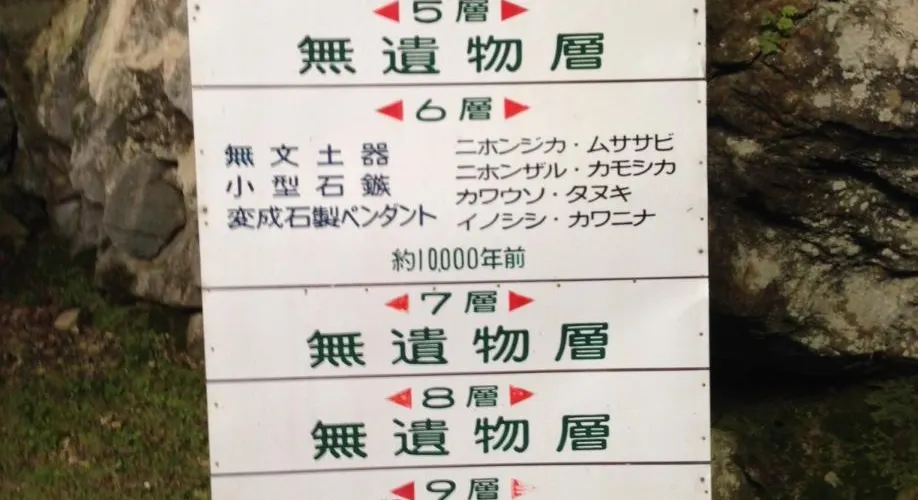 ◀5層▶
無遺物層
◀6層▶
無文土器
小型石鏃
変成石製ペンダント
ニホンジカ・ムササビ
ニホンザル・カモシカ
カワウソ・タヌキ
イノシシ・カワニナ
約10,000年前
◀7層▶
無遺物層
◀8層▶
無遺物層
◀9層▶